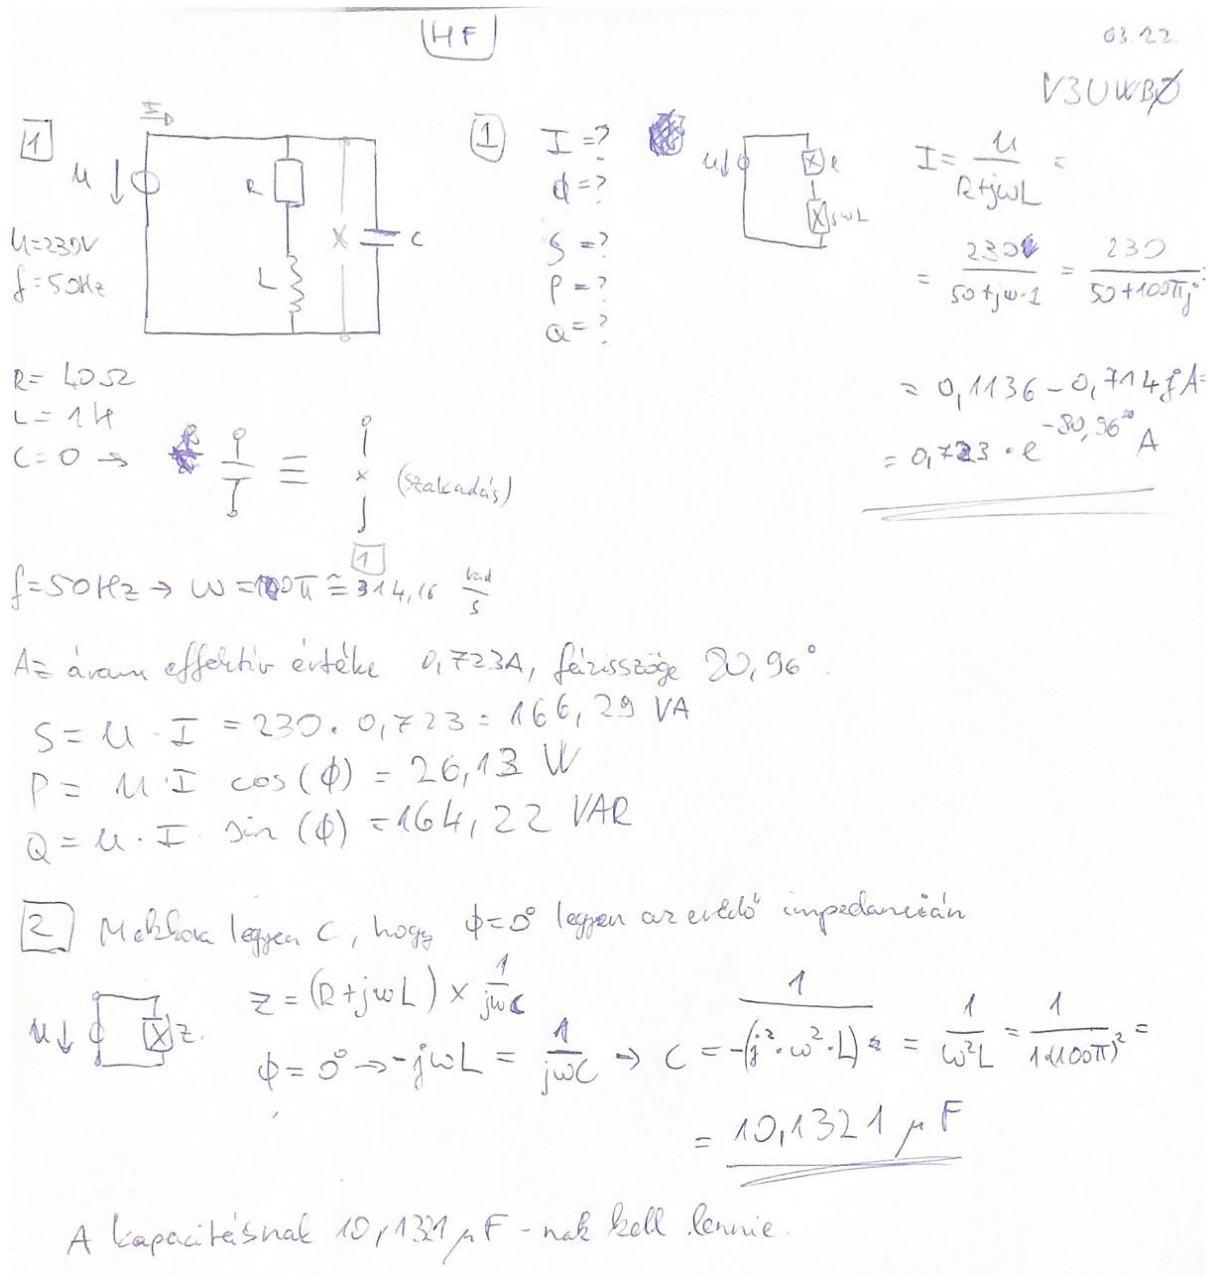 HF
03.22.
V3UWBØ
1
I
U
R
L
C
U=230V
f=50Hz
R= 40Ω
L= 1H
C=0 →
≡
x (szakadás)
1
1
I=?
ϕ=?
S=?
P=?
Q=?
U
R
jωL
I = U / (R+jωL) =
= 230 / (50+jω·1) = 230 / (50+100πj) =
= 0,1136 - 0,714jA=
= 0,723 · e^(-80,96°) A
f=50Hz → ω = 100π ≅ 314,16 rad/s
Az áram effektív értéke 0,723A, fázisszöge 80,96°.
S = U · I = 230 · 0,723 = 166,29 VA
P = U · I cos(ϕ) = 26,13 W
Q = U · I · sin(ϕ) = 164,22 VAR
2 Mekkora legyen C, hogy ϕ=0° legyen az eredő impedancián
U
Z.
Z = (R+jωL) × 1/(jωC)
ϕ = 0° → -jωL = 1/(jωC) → C = 1/(-(j²·ω²·L)) = 1/(ω²L) = 1/(1·(100π)²) =
= 10,1321 μF
A kapacitásnak 10,1321 μF-nak kell lennie.